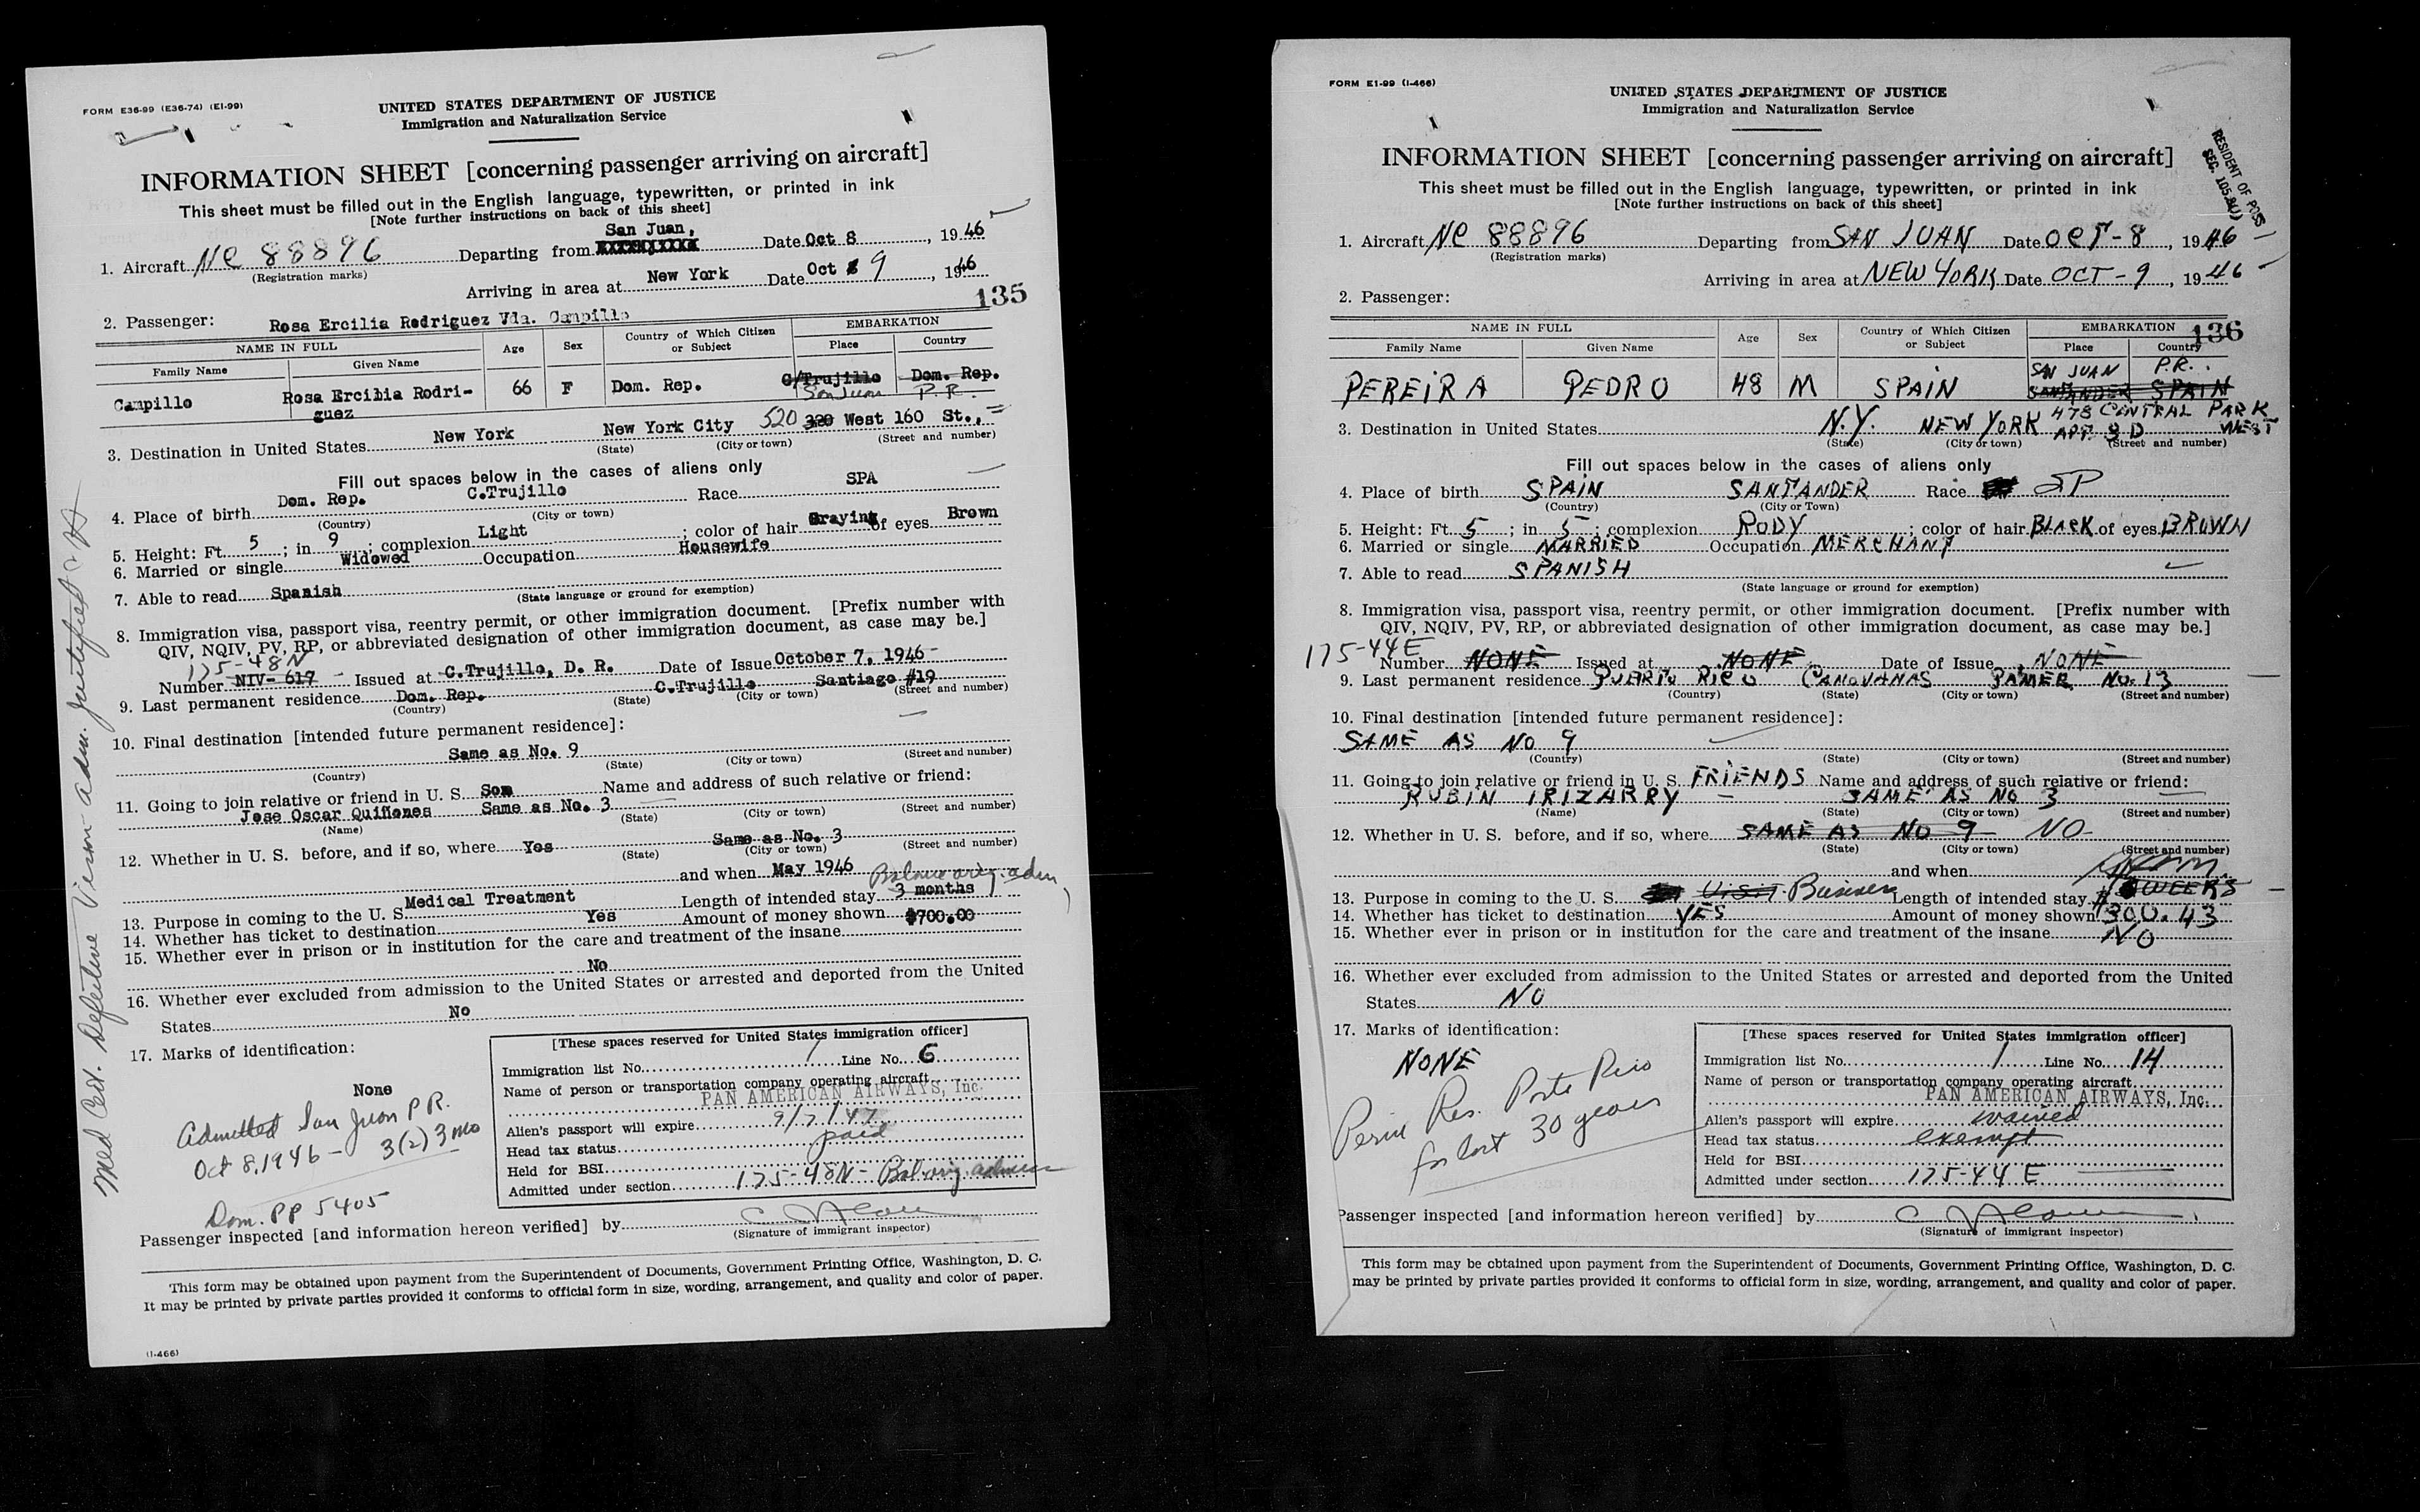 FORM E36-99 (E36-74) (E1-99)
UNITED STATES DEPARTMENT OF JUSTICE
Immigration and Naturalization Service
INFORMATION SHEET [concerning passenger arriving on aircraft]
This sheet must be filled out in the English language, typewritten, or printed in ink
[Note further instructions on back of this sheet]
San Juan,
1. Aircraft NC 88896 Departing from Date Oct 8, 1946
(Registration marks)
Arriving in area at New York Date Oct 9, 1946
135
2. Passenger: Rosa Ercilia Rodriguez Vda. Campillo
NAME IN FULL Age Sex Country of Which Citizen or Subject EMBARKATION
Family Name Given Name Place Country
Campillo Rosa Ercibia Rodri-guez 66 F Dom. Rep. C/Trujillo Dom. Rep.
San Juan P.R.
3. Destination in United States New York New York City 520 320 West 160 St.,
(State) (City or town) (Street and number)
Fill out spaces below in the cases of aliens only
4. Place of birth Dom. Rep. C.Trujillo Race SPA
(Country) (City or town)
5. Height: Ft. 5; in 9; complexion Light; color of hair Graying of eyes Brown
6. Married or single Widowed Occupation Housewife
7. Able to read Spanish
(State language or ground for exemption)
8. Immigration visa, passport visa, reentry permit, or other immigration document. [Prefix number with
QIV, NQIV, PV, RP, or abbreviated designation of other immigration document, as case may be.]
175-48N
Number NIV- 617 Issued at C.Trujillo, D. R. Date of Issue October 7, 1946
9. Last permanent residence Dom. Rep. C.Trujillo Santiago #19
(Country) (State) (City or town) (Street and number)
10. Final destination [intended future permanent residence]:
Same as No. 9
(Country) (State) (City or town) (Street and number)
11. Going to join relative or friend in U. S. Son Name and address of such relative or friend:
Jose Oscar Quiñones Same as No. 3
(Name) (State) (City or town) (Street and number)
12. Whether in U. S. before, and if so, where Yes Same as No. 3
(State) (City or town) (Street and number)
and when May 1946 Balance orig. adm
13. Purpose in coming to the U. S. Medical Treatment Length of intended stay 3 months
14. Whether has ticket to destination Yes Amount of money shown $700.00
15. Whether ever in prison or in institution for the care and treatment of the insane
No
16. Whether ever excluded from admission to the United States or arrested and deported from the United
States No
17. Marks of identification:
None
Admitted San Juan P.R.
Oct 8, 1946 - 3(2) 3 mo
Dom. PP 5405
[These spaces reserved for United States immigration officer]
Immigration list No. 1 Line No. 6
Name of person or transportation company operating aircraft
PAN AMERICAN AIRWAYS, Inc.
Alien's passport will expire 9/7/47
Head tax status paid
Held for BSI
Admitted under section 175-48N - Bal orig. admn
Passenger inspected [and information hereon verified] by
(Signature of immigrant inspector)
This form may be obtained upon payment from the Superintendent of Documents, Government Printing Office, Washington, D. C.
It may be printed by private parties provided it conforms to official form in size, wording, arrangement, and quality and color of paper.
(I-466)
Med Cert. Defective Vision - adm. justified
FORM E1-99 (I-466)
UNITED STATES DEPARTMENT OF JUSTICE
Immigration and Naturalization Service
INFORMATION SHEET [concerning passenger arriving on aircraft]
This sheet must be filled out in the English language, typewritten, or printed in ink
[Note further instructions on back of this sheet]
RESIDENT OF POSS
SEC. 105.3(J)
1. Aircraft NC 88896 Departing from SAN JUAN Date OCT-8, 1946
(Registration marks)
Arriving in area at NEW YORK Date OCT-9, 1946
2. Passenger:
136
NAME IN FULL Age Sex Country of Which Citizen or Subject EMBARKATION
Family Name Given Name Place Country
SAN JUAN P.R.
PEREIRA PEDRO 48 M SPAIN SANTANDER SPAIN
478 CENTRAL PARK WEST
3. Destination in United States N.Y. NEW YORK APT. 3 D
(State) (City or town) (Street and number)
Fill out spaces below in the cases of aliens only
4. Place of birth SPAIN SANTANDER Race SP
(Country) (City or Town)
5. Height: Ft. 5; in 5; complexion RODY; color of hair BLACK of eyes BROWN
6. Married or single MARRIED Occupation MERCHANT
7. Able to read SPANISH
(State language or ground for exemption)
8. Immigration visa, passport visa, reentry permit, or other immigration document. [Prefix number with
QIV, NQIV, PV, RP, or abbreviated designation of other immigration document, as case may be.]
175-44E
Number NONE Issued at NONE Date of Issue NONE
9. Last permanent residence PUERTO RICO CANOVANAS PAMER No. 13
(Country) (State) (City or town) (Street and number)
10. Final destination [intended future permanent residence]:
SAME AS NO 9
(Country) (State) (City or town) (Street and number)
11. Going to join relative or friend in U. S. FRIENDS Name and address of such relative or friend:
RUBIN IRIZARRY - SAME AS NO 3
(Name) (State) (City or town) (Street and number)
12. Whether in U. S. before, and if so, where SAME AS NO 9 NO
(State) (City or town) (Street and number)
and when
13. Purpose in coming to the U. S. Visit Business Length of intended stay WEEKS
14. Whether has ticket to destination YES Amount of money shown $300.43
15. Whether ever in prison or in institution for the care and treatment of the insane NO
16. Whether ever excluded from admission to the United States or arrested and deported from the United
States NO
17. Marks of identification:
NONE
Perm Res. Porto Rico
for last 30 years
[These spaces reserved for United States immigration officer]
Immigration list No. 1 Line No. 14
Name of person or transportation company operating aircraft
PAN AMERICAN AIRWAYS, Inc.
Alien's passport will expire waived
Head tax status exempt
Held for BSI
Admitted under section 175-44 E
Passenger inspected [and information hereon verified] by
(Signature of immigrant inspector)
This form may be obtained upon payment from the Superintendent of Documents, Government Printing Office, Washington, D. C.
may be printed by private parties provided it conforms to official form in size, wording, arrangement, and quality and color of paper.